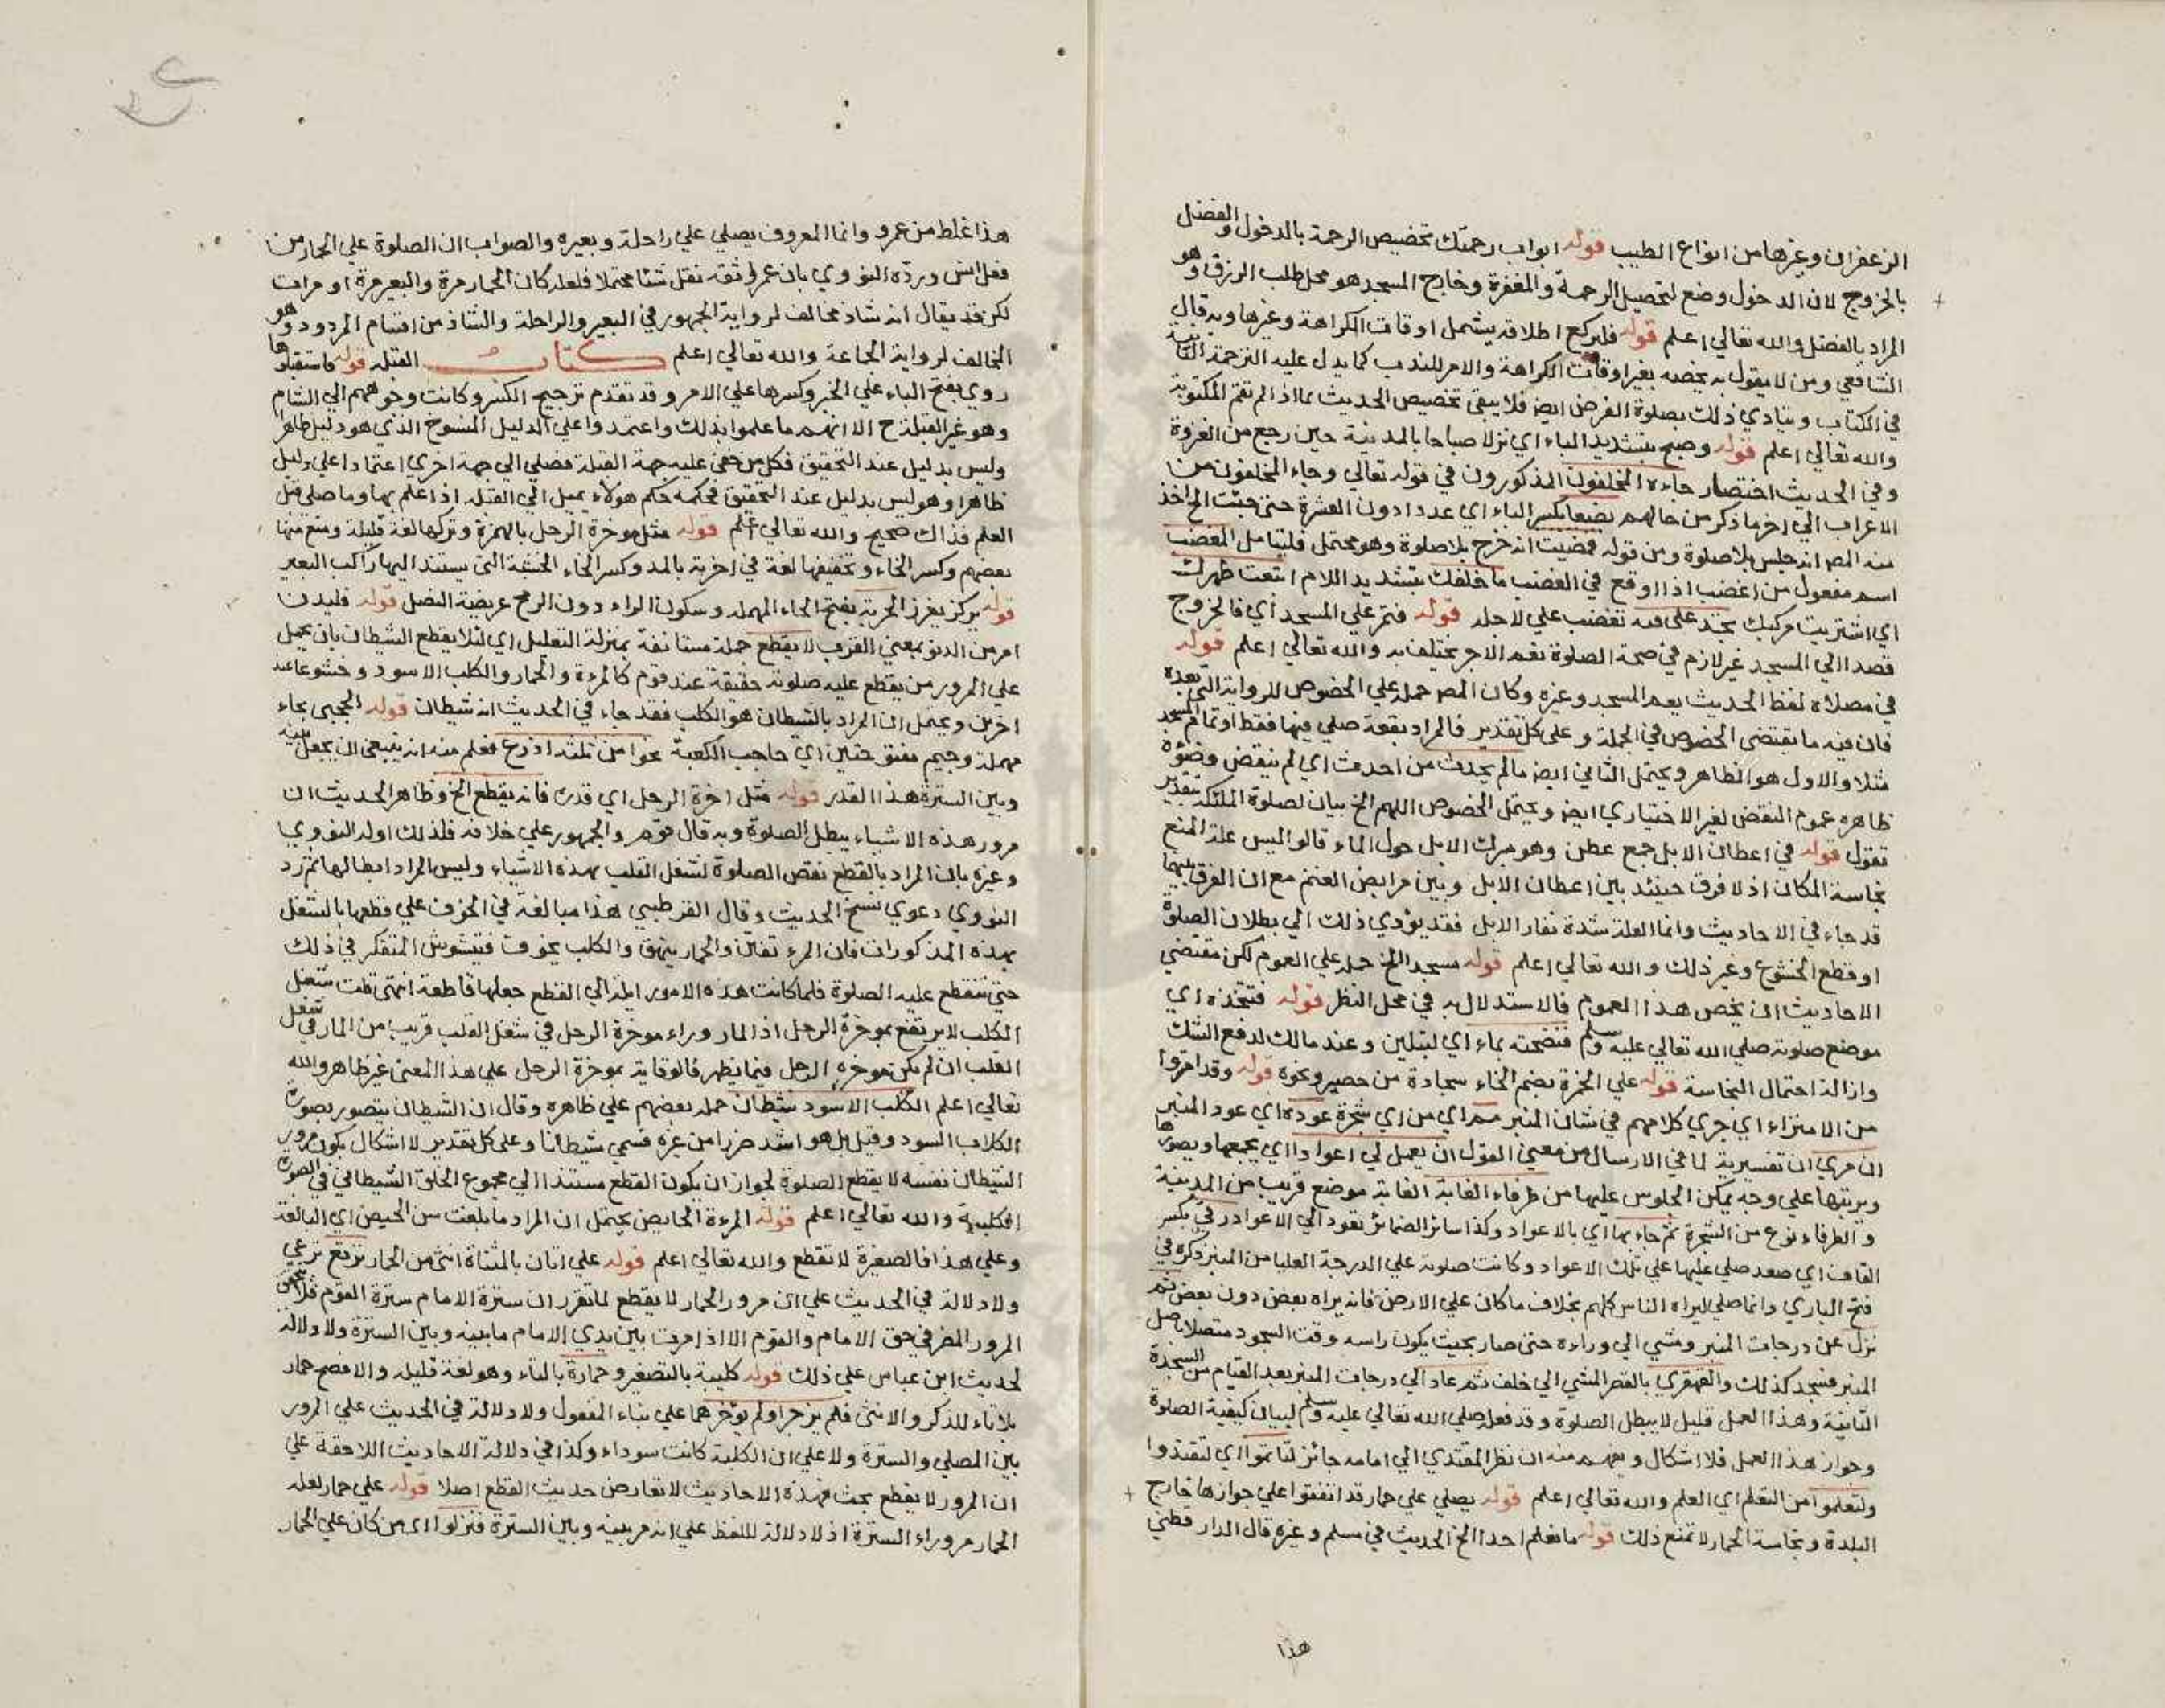 الزعفران وغيرها من انواع الطيب قوله ابواب رحمتك تخصيص الرحمة بالدخول والفضل
بالخروج لان الدخول وضع لتحصيل الرحمة والمغفرة وخارج المسجد هو محل طلب الرزق وهو
المراد بالفضل والله تعالي اعلم قوله فليركع اطلاقه يشمل اوقات الكراهة وغيرها وبه قال
الشافعي ومن لا يقول به يخصه بغير اوقات الكراهة والامر للندب كما يدل عليه الترجمة الثانية
في الكتاب ويتادي ذلك بصلوة الفرض ايضا فلا يبقي تخصيص الحديث بما اذا لم تقم المكتوبة
والله تعالي اعلم قوله وصبح بتشديد الباء اي نزلا صباحا بالمدينة حين رجع من الغزوة
وفي الحديث اختصار جاءه المخلفون المذكورون في قوله تعالي وجاء المخلفون من
الاعراب الي اخر ما ذكر من حالهم بضعا بكسر الباء اي عددا دون العشرة حتي جئت الخ اخذ
منه المص انه جلس بلا صلوة ومن قوله فمضيت انه خرج بلا صلوة وهو محتمل فليتامل المغضب
اسم مفعول من اغضب اذا اوقع في الغضب ما خلفك بتشديد اللام ابتعت ظهرك
اي اشتريت مركبك تجد علي فيه تغضب علي لاجله قوله فتمر علي المسجد اي فالخروج
قصدا الي المسجد غير لازم في صحة الصلوة نعم الاجر يختلف به والله تعالي اعلم قوله
في مصلاه لفظ الحديث يعم المسجد وغيره وكان المص حمله علي الخصوص للرواية التي بعده
فان فيه ما يقتضي الخصوص في الجملة وعلي كل تقدير فالمراد بقعة صلي فيها فقط او تمام المسجد
مثلا والاول هو الظاهر ويحتمل الثاني ايضا ما لم يحدث من احدث اي لم ينقض وضوءه
ظاهره عموم النقض لغير الاختياري ايضا ويحتمل الخصوص اللهم الخ بيان لصلوة الملئكة بتقدير
تقول قوله في اعطان الابل جمع عطن وهو مبرك الابل حول الماء قالوا ليس علة المنع
نجاسة المكان اذ لا فرق حينئذ بين اعطان الابل وبين مرابض الغنم مع ان الفرق بينهما
قد جاء في الاحاديث وانما العلة شدة نفار الابل فقد يؤدي ذلك الي بطلان الصلوة
او قطع الخشوع وغير ذلك والله تعالي اعلم قوله مسجد الخ حمله علي العموم لكن مقتضي
الاحاديث ان يخص هذا العموم فالاستدلال به في محل النظر قوله فتتخذه اي
موضع صلوته صلي الله تعالي عليه وسلم فنضحته بماء اي لتلين وعند مالك لدفع الشك
وازالة احتمال النجاسة قوله علي الخمرة بضم الخاء سجادة من حصير ونحوه قوله وقد امتروا
من الامتراء اي جري كلامهم في شان المنبر مم اي من اي شجرة عوده اي عود المنبر
ان مري ان تفسيرية لما في الارسال من معني القول ان يعمل لي اعوادا اي يجمعها ويصورها
ويرتبها علي وجه يمكن الجلوس عليها من طرفاء الغابة الغابة موضع قريب من المدينة
والطرفاء نوع من الشجرة ثم جاء بها اي بالاعواد وكذا سائر الضمائر تعود الي الاعواد رقي بكسر
القاف اي صعد صلي عليها علي تلك الاعواد وكانت صلوته علي الدرجة العليا من المنبر ذكره في
فتح الباري وانما صلي ليراه الناس كلهم بخلاف ما كان علي الارض فانه يراه بعض دون بعض ثم
نزل عن درجات المنبر ومشي الي وراءه حتي صار بحيث يكون راسه وقت السجود متصلا باصل
المنبر فسجد كذلك والقهقري بالقصر المشي الي خلف ثم عاد الي درجات المنبر بعد القيام من السجدة
الثانية وهذا العمل قليل لا يبطل الصلوة وقد فعله صلي الله تعالي عليه وسلم لبيان كيفية الصلوة
وجواز هذا العمل فلا اشكال ويفهم منه ان نظر المقتدي الي امامه جائز لتاتموا اي لتقتدوا
ولتعلموا من التعلم اي العلم والله تعالي اعلم قوله يصلي علي حمار قد اتفقوا علي جوازها خارج
البلدة ونجاسة الحمار لا تمنع ذلك قوله ما نعلم احدا الخ الحديث في مسلم وغيره قال الدارقطني
هذا
هذا غلط من عمرو وانما المعروف يصلي علي راحلة وبعيره والصواب ان الصلوة علي الحمار من
فعل انس ورده النووي بان عمرا ثقة نقل شيئا محتملا فلعله كان الحمار مرة والبعير مرة او مرات
لكن قد يقال انه شاذ مخالف لرواية الجمهور في البعير والراحلة والشاذ من اقسام المردود وهو
المخالف لرواية الجماعة والله تعالي اعلم كتاب القبلة قوله فاستقبلوها
روي بفتح الباء علي الخبر وكسرها علي الامر وقد تقدم ترجيح الكسر وكانت وجوههم الي الشام
وهو غير القبلة ح الا انهم ما علموا بذلك واعتمدوا علي الدليل المنسوخ الذي هو دليل ظاهرا
وليس بدليل عند التحقيق فكل من خفي عليه جهة القبلة فصلي الي جهة اخري اعتمادا علي دليل
ظاهرا وهو ليس بدليل عند التحقيق فحكمه حكم هولاء يميل الي القبلة اذا علم بها وما صلي قبل
العلم فذاك صحيح والله تعالي اعلم قوله مثل موخرة الرحل بالهمزة وتركها لغة قليلة ومنع منها
بعضهم وكسر الخاء وتخفيفها لغة في اخرة بالمد وكسر الخاء الخشبة التي يستند اليها راكب البعير
قوله يركز يغرز الحربة بفتح الحاء المهملة وسكون الراء دون الرمح عريضة النصل قوله فليدن
امر من الدنو بمعني القرب لا يقطع جملة مستانفة بمنزلة التعليل اي لئلا يقطع الشيطان بان يحمل
علي المرور من يقطع عليه صلوته حقيقة عند قوم كالمرءة والحمار والكلب الاسود وخشوعا عند
اخرين ويحتمل ان المراد بالشيطان هو الكلب فقد جاء في الحديث انه شيطان قوله الحجبي بحاء
مهملة وجيم مفتوحتين اي حاجب الكعبة نحوا من ثلثة اذرع فعلم منه انه ينبغي ان يجعل بينه
وبين السترة هذا القدر قوله مثل اخرة الرحل اي قدره فانه يقطع الخ وظاهر الحديث ان
مرور هذه الاشياء يبطل الصلوة وبه قال قوم والجمهور علي خلافه فلذلك اوله النووي
وغيره بان المراد بالقطع نقص الصلوة لشغل القلب بهذه الاشياء وليس المراد ابطالها ثم رد
النووي دعوي نسخ الحديث وقال القرطبي هذا مبالغة في الخوف علي قطعها بالشغل
بهذه المذكورات فان المرءة تفتن والحمار ينهق والكلب يخوف فيتشوش المتفكر في ذلك
حتي تنقطع عليه الصلوة فلما كانت هذه الامور ايلة الي القطع جعلها قاطعة انتهي قلت شغل
الكلب لا يرتفع بموخرة الرحل اذ المار وراء موخرة الرحل في شغل القلب قريب من المار في شغل
القلب ان لم يكن موخرة الرحل فيما يظهر فالوقاية بموخرة الرحل علي هذا المعني غير ظاهر والله
تعالي اعلم الكلب الاسود شيطان حمله بعضهم علي ظاهره وقال ان الشيطان يتصور بصورة
الكلاب السود وقيل بل هو اشد ضررا من غيره فسمي شيطانا وعلي كل تقدير لا اشكال بكون مرور
الشيطان نفسه لا يقطع الصلوة لجواز ان يكون القطع مستندا الي مجموع الخلق الشيطاني في الصورة
الكلبية والله تعالي اعلم قوله المرءة الحايض يحتمل ان المراد ما بلغت سن الحيض اي البالغة
وعلي هذا فالصغيرة لا تقطع والله تعالي اعلم قوله علي اتان بالمثناة انثي من الحمار ترتع ترعي
ولا دلالة في الحديث علي ان مرور الحمار لا يقطع لما تقرر ان سترة الامام سترة القوم فلا يتحقق
المرور المضر في حق الامام والقوم الا اذا مرت بين يدي الامام ما بينه وبين السترة ولا دلالة
لحديث ابن عباس علي ذلك قوله كليبة بالتصغير وحمارة بالتاء وهو لغة قليلة والافصح حمار
بلا تاء للذكر والانثي فلم يزجرا ولم يؤخرهما علي بناء المفعول ولا دلالة في الحديث علي المرور
بين المصلي والسترة ولا علي ان الكلبة كانت سوداء وكذا في دلالة الاحاديث اللاحقة علي
ان المرور لا يقطع بحث فهذه الاحاديث لا تعارض حديث القطع اصلا قوله علي حمار لعله
الحمار مر وراء السترة اذ لا دلالة للفظ علي انه مر بينه وبين السترة فنزلوا اي من كان علي الحمار